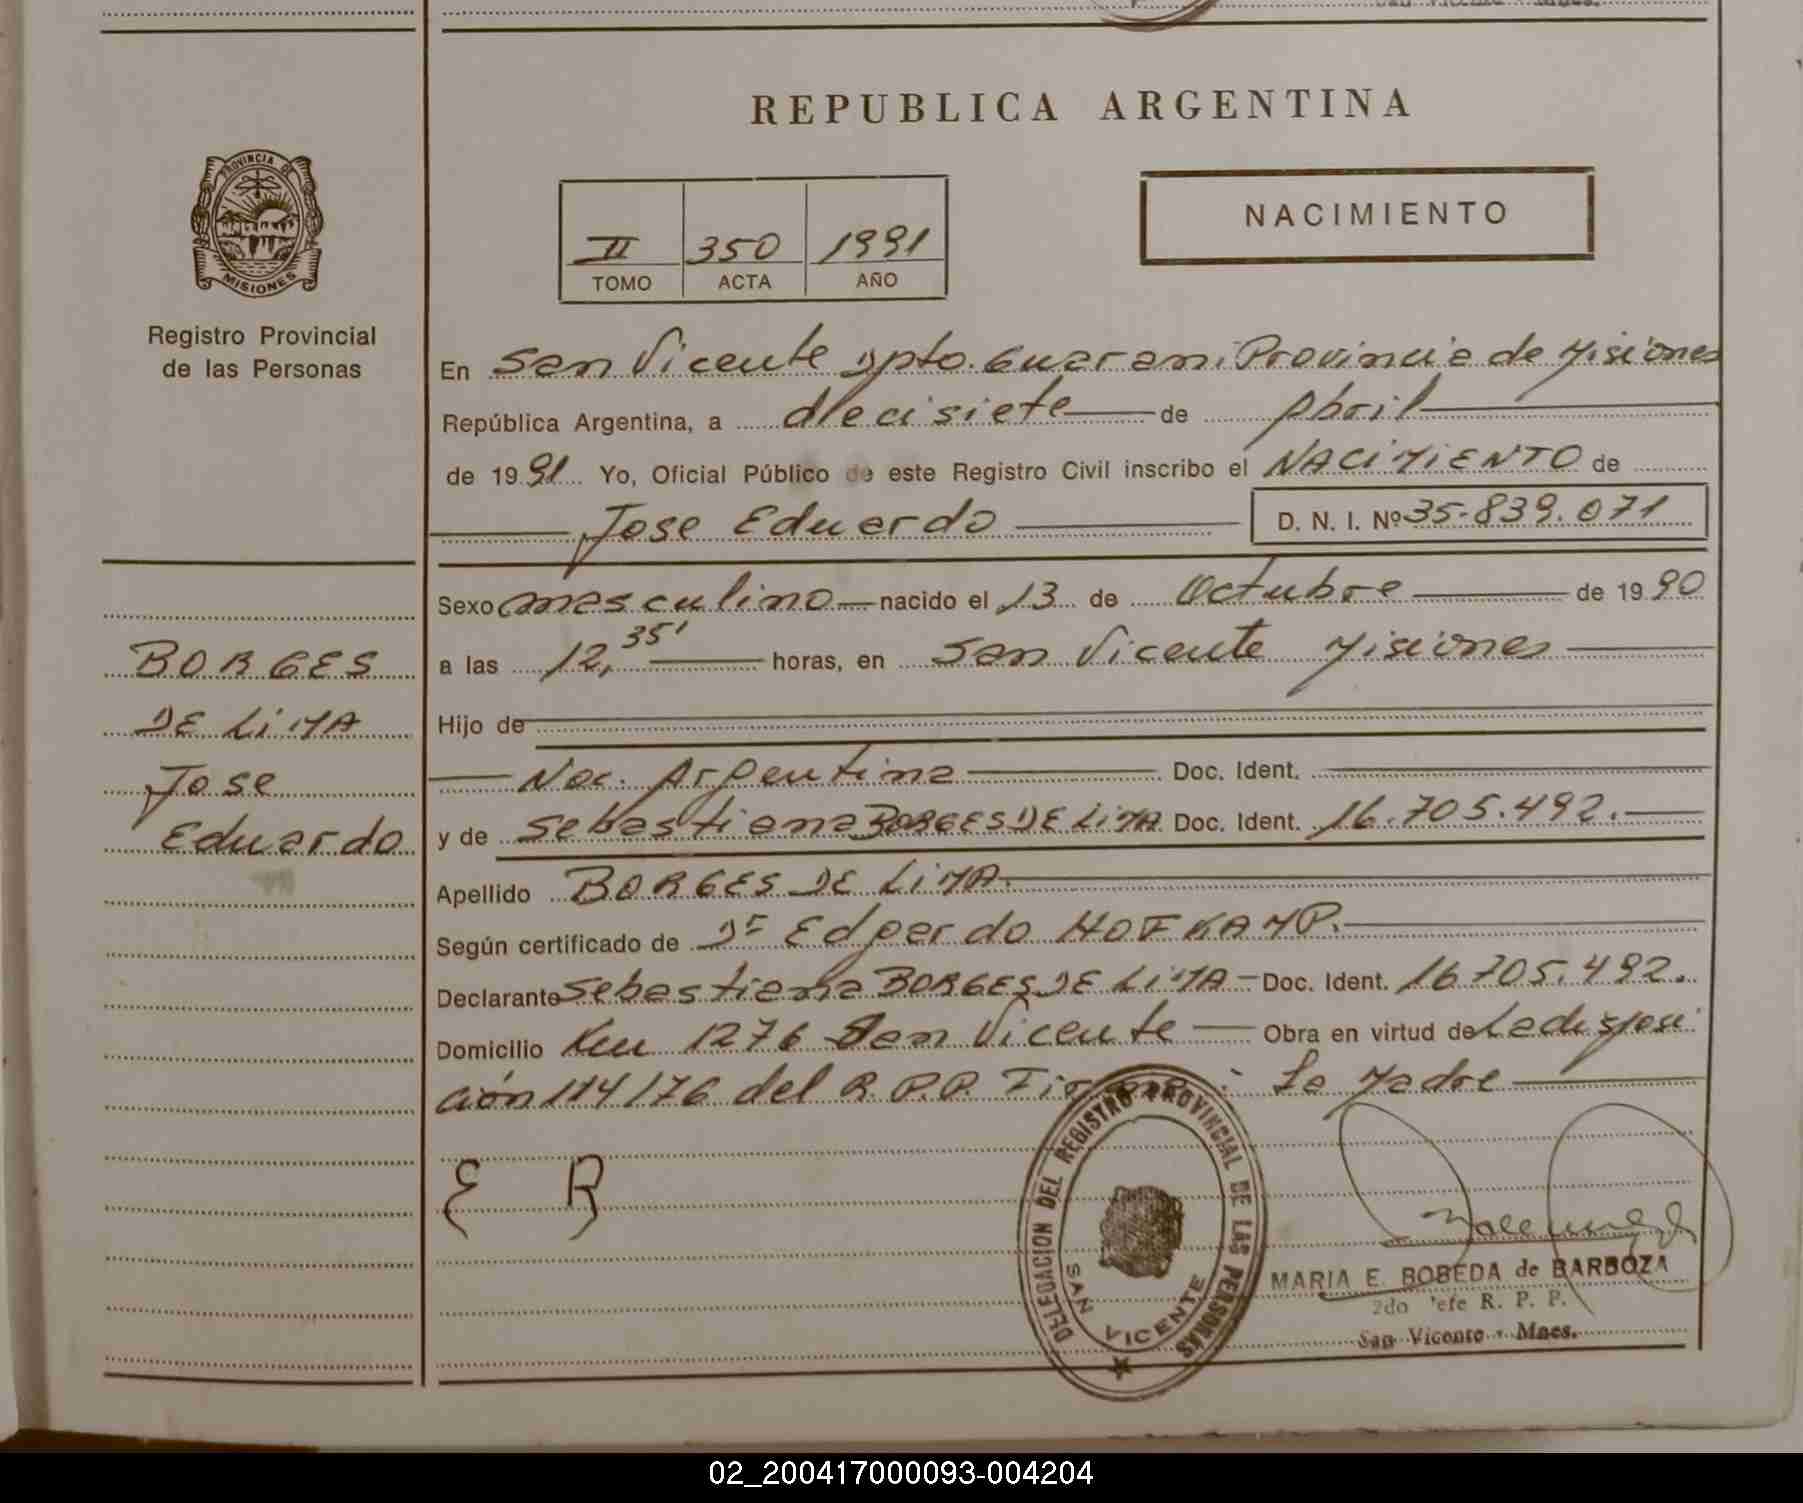 REPUBLICA ARGENTINA
PROVINCIA DE
MISIONES
Registro Provincial
de las Personas
NACIMIENTO
II 350 1991
TOMO ACTA AÑO
En San Vicente Dpto. Guarani Provincia de Misiones
República Argentina, a diecisiete de Abril
de 1991 Yo, Oficial Público de este Registro Civil inscribo el NACIMIENTO de
Jose Eduardo D. N. I. Nº 35.839.071
Sexo masculino nacido el 13 de Octubre de 1990
a las 12,35' horas, en San Vicente Misiones
Hijo de
Nac. Argentina Doc. Ident.
y de Sebastiana BORGES DE LIMA Doc. Ident. 16.705.492.
Apellido BORGES DE LIMA.
Según certificado de Dr Edgardo HOFKAMP.
Declarante Sebastiana BORGES DE LIMA Doc. Ident. 16.705.492.
Domicilio Km 1276 San Vicente Obra en virtud de La disposi
ción 114/76 del R.P.P. : La Madre
E R
BORGES
DE LIMA
Jose
Eduardo
DELEGACION DEL REGISTRO PROVINCIAL DE LAS PERSONAS
SAN VICENTE
MARIA E. BOBEDA de BARBOZA
2do Jefe R. P. P.
San Vicente - Mnes.
02_200417000093-004204